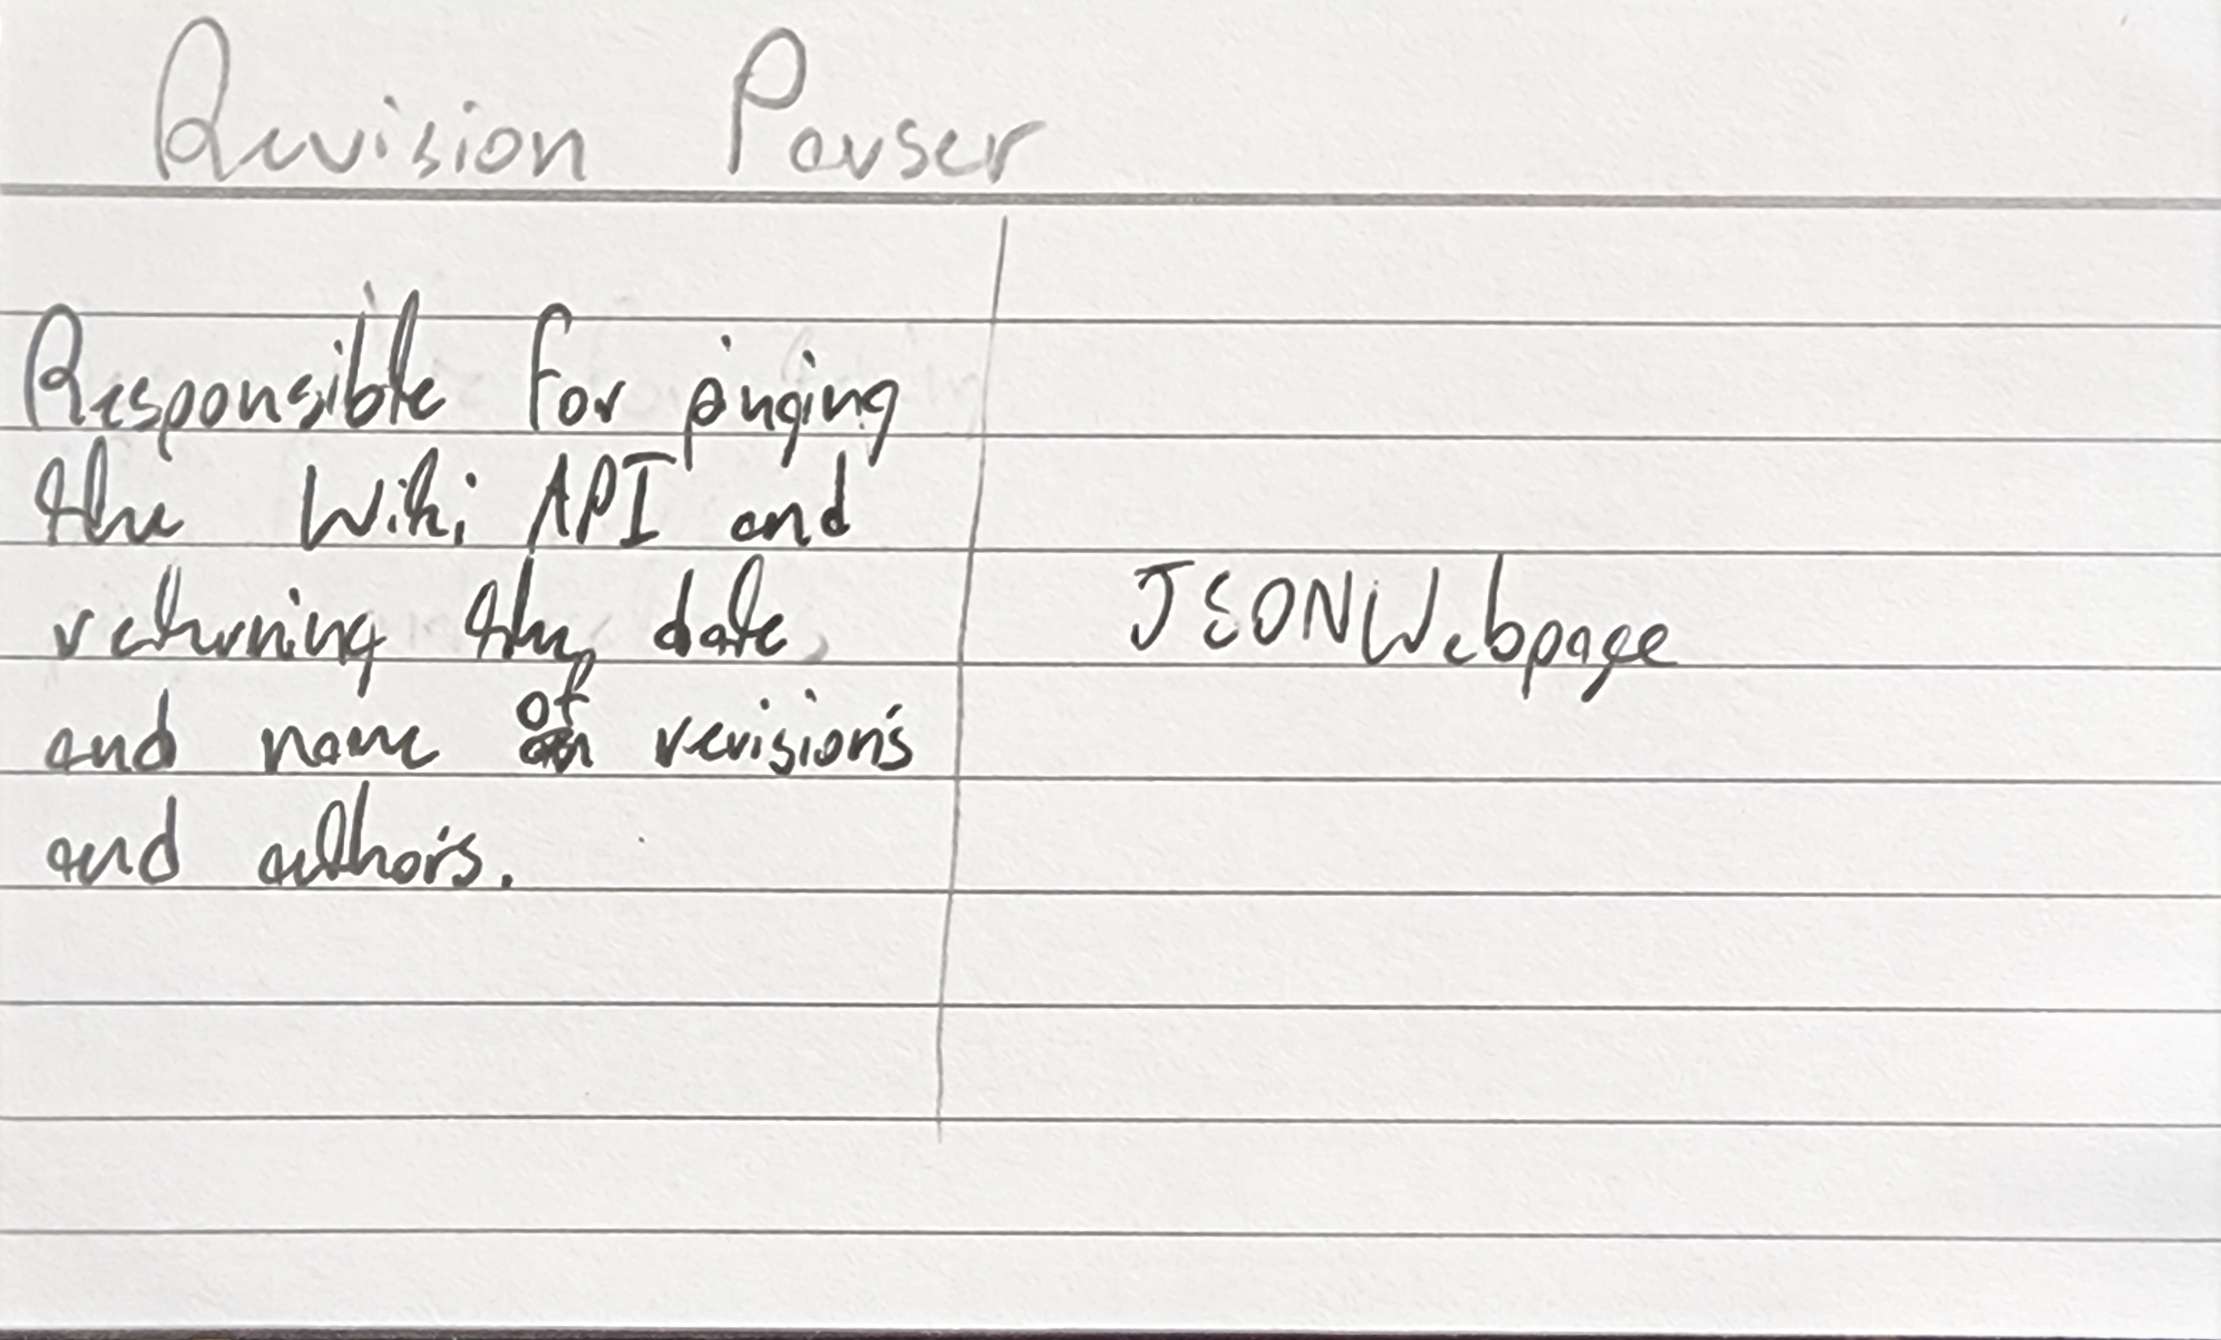 Revision Parser
Responsible for pinging
the Wiki API and
returning the date,
and name of revision's
and author's.
JSONWebpage